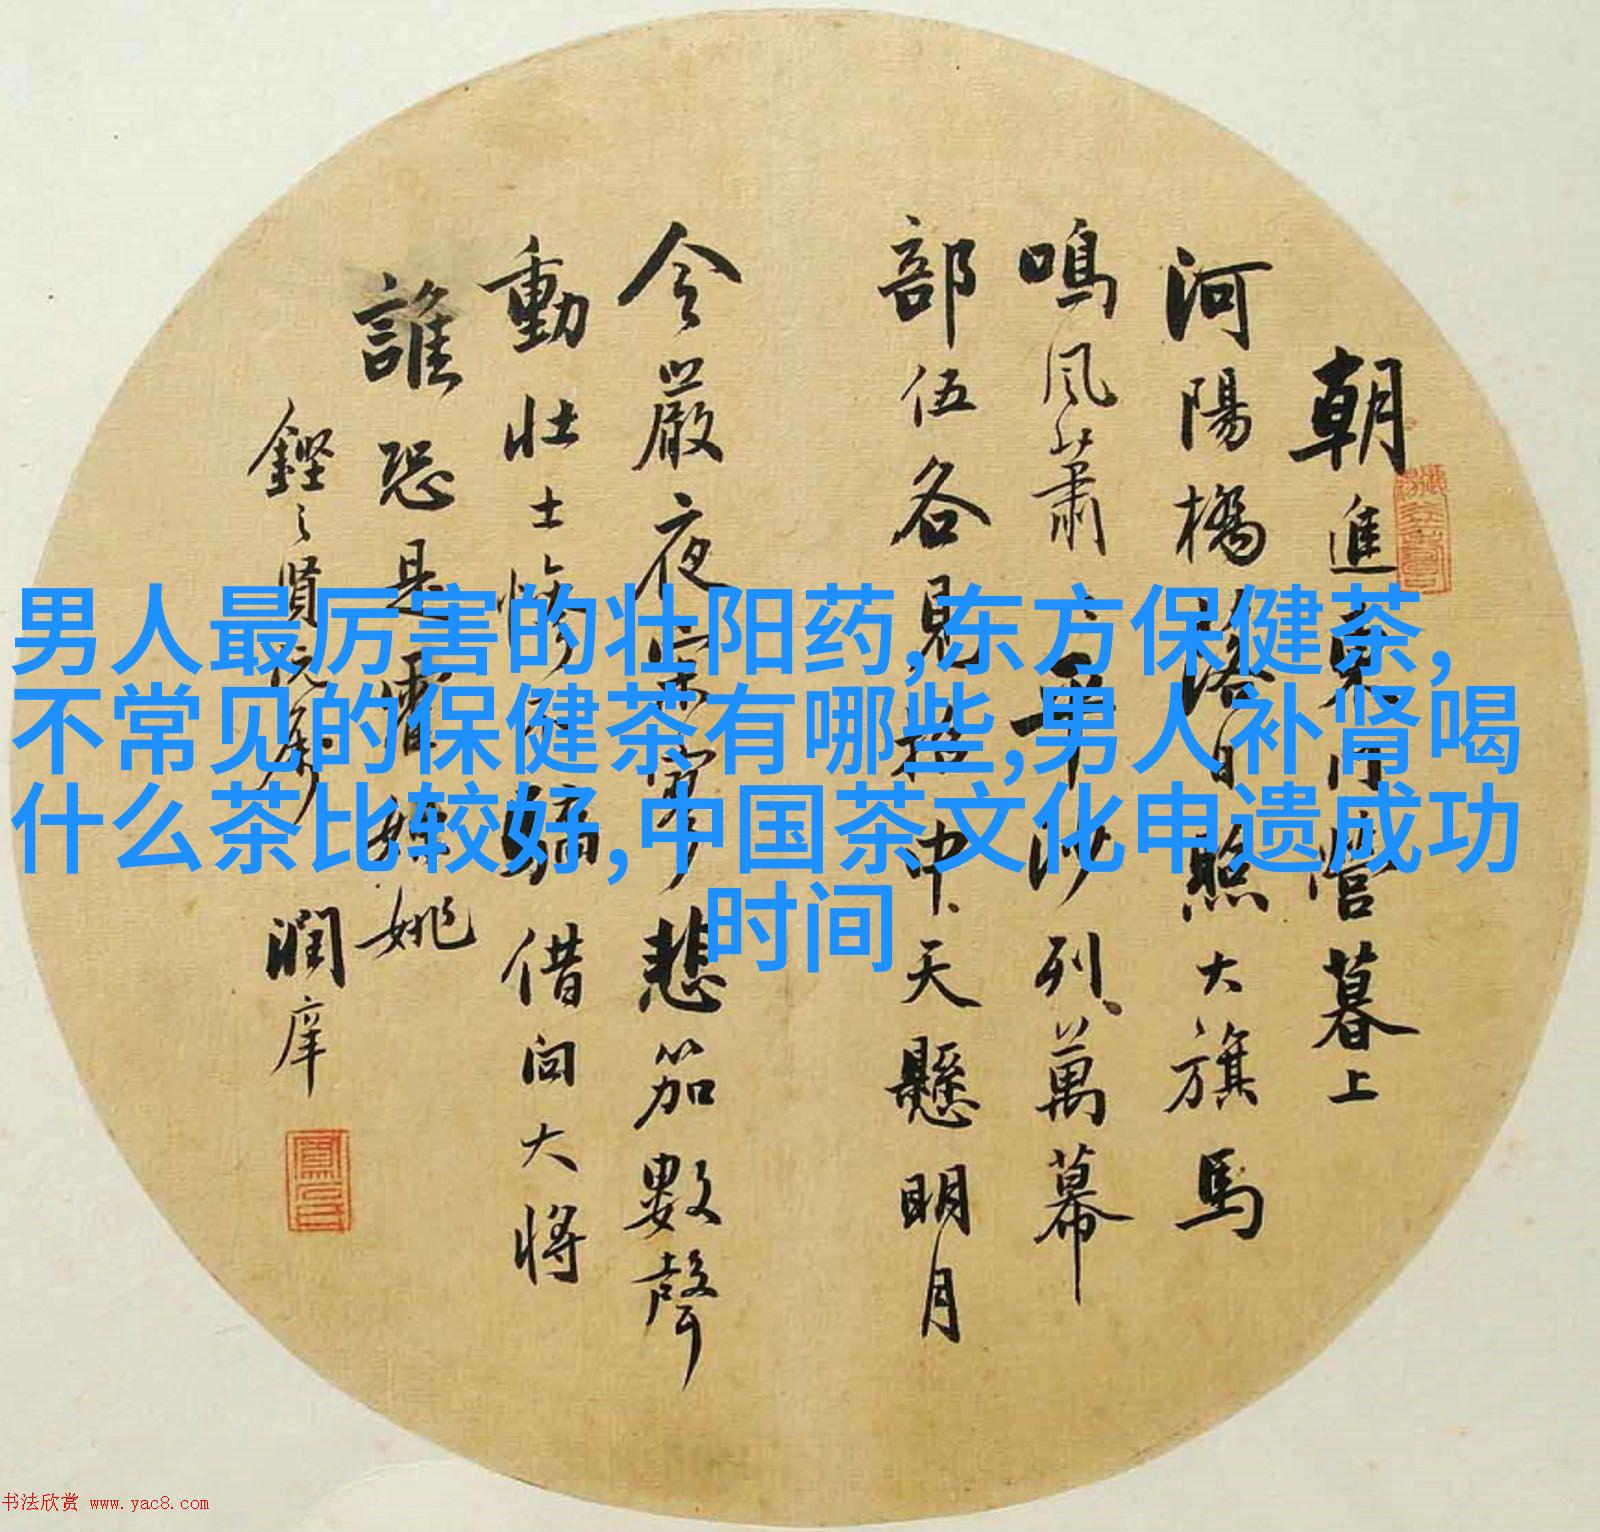 朝進東門營暮上
河陽橋落日照大旗馬
鳴風蕭〻平沙列萬幕
部伍各見招中天懸明月
令嚴夜寂寥悲笳數聲
動壯士慘不驕借問大將
誰恐是霍嫖姚
鏗之賢阮 潤庠
男人最厉害的壮阳药,东方保健茶,
不常见的保健茶有哪些,男人补肾喝
什么茶比较好,中国茶文化申遗成功
时间
书法欣赏 www.yac8.com